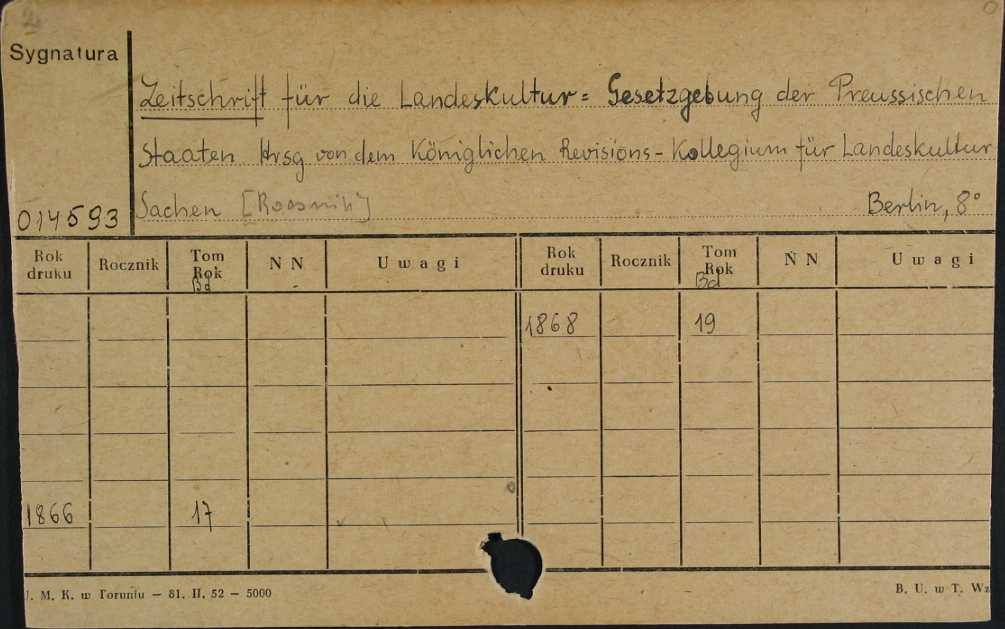 Sygnatura
Zeitschrift für die Landeskultur = Gesetzgebung der Preussischen
Staaten Hrsg von dem Königlichen Revisions - Kollegium für Landeskultur
014593 Sachen [Roosnik] Berlin, 8°
Rok druku Rocznik Tom Rok Bd N N Uwagi Rok druku Rocznik Tom Rok Bd N N Uwagi
1868 19
1866 17
U. M. K. w Toruniu — 81. II. 52 — 5000 B. U. w T. Wz